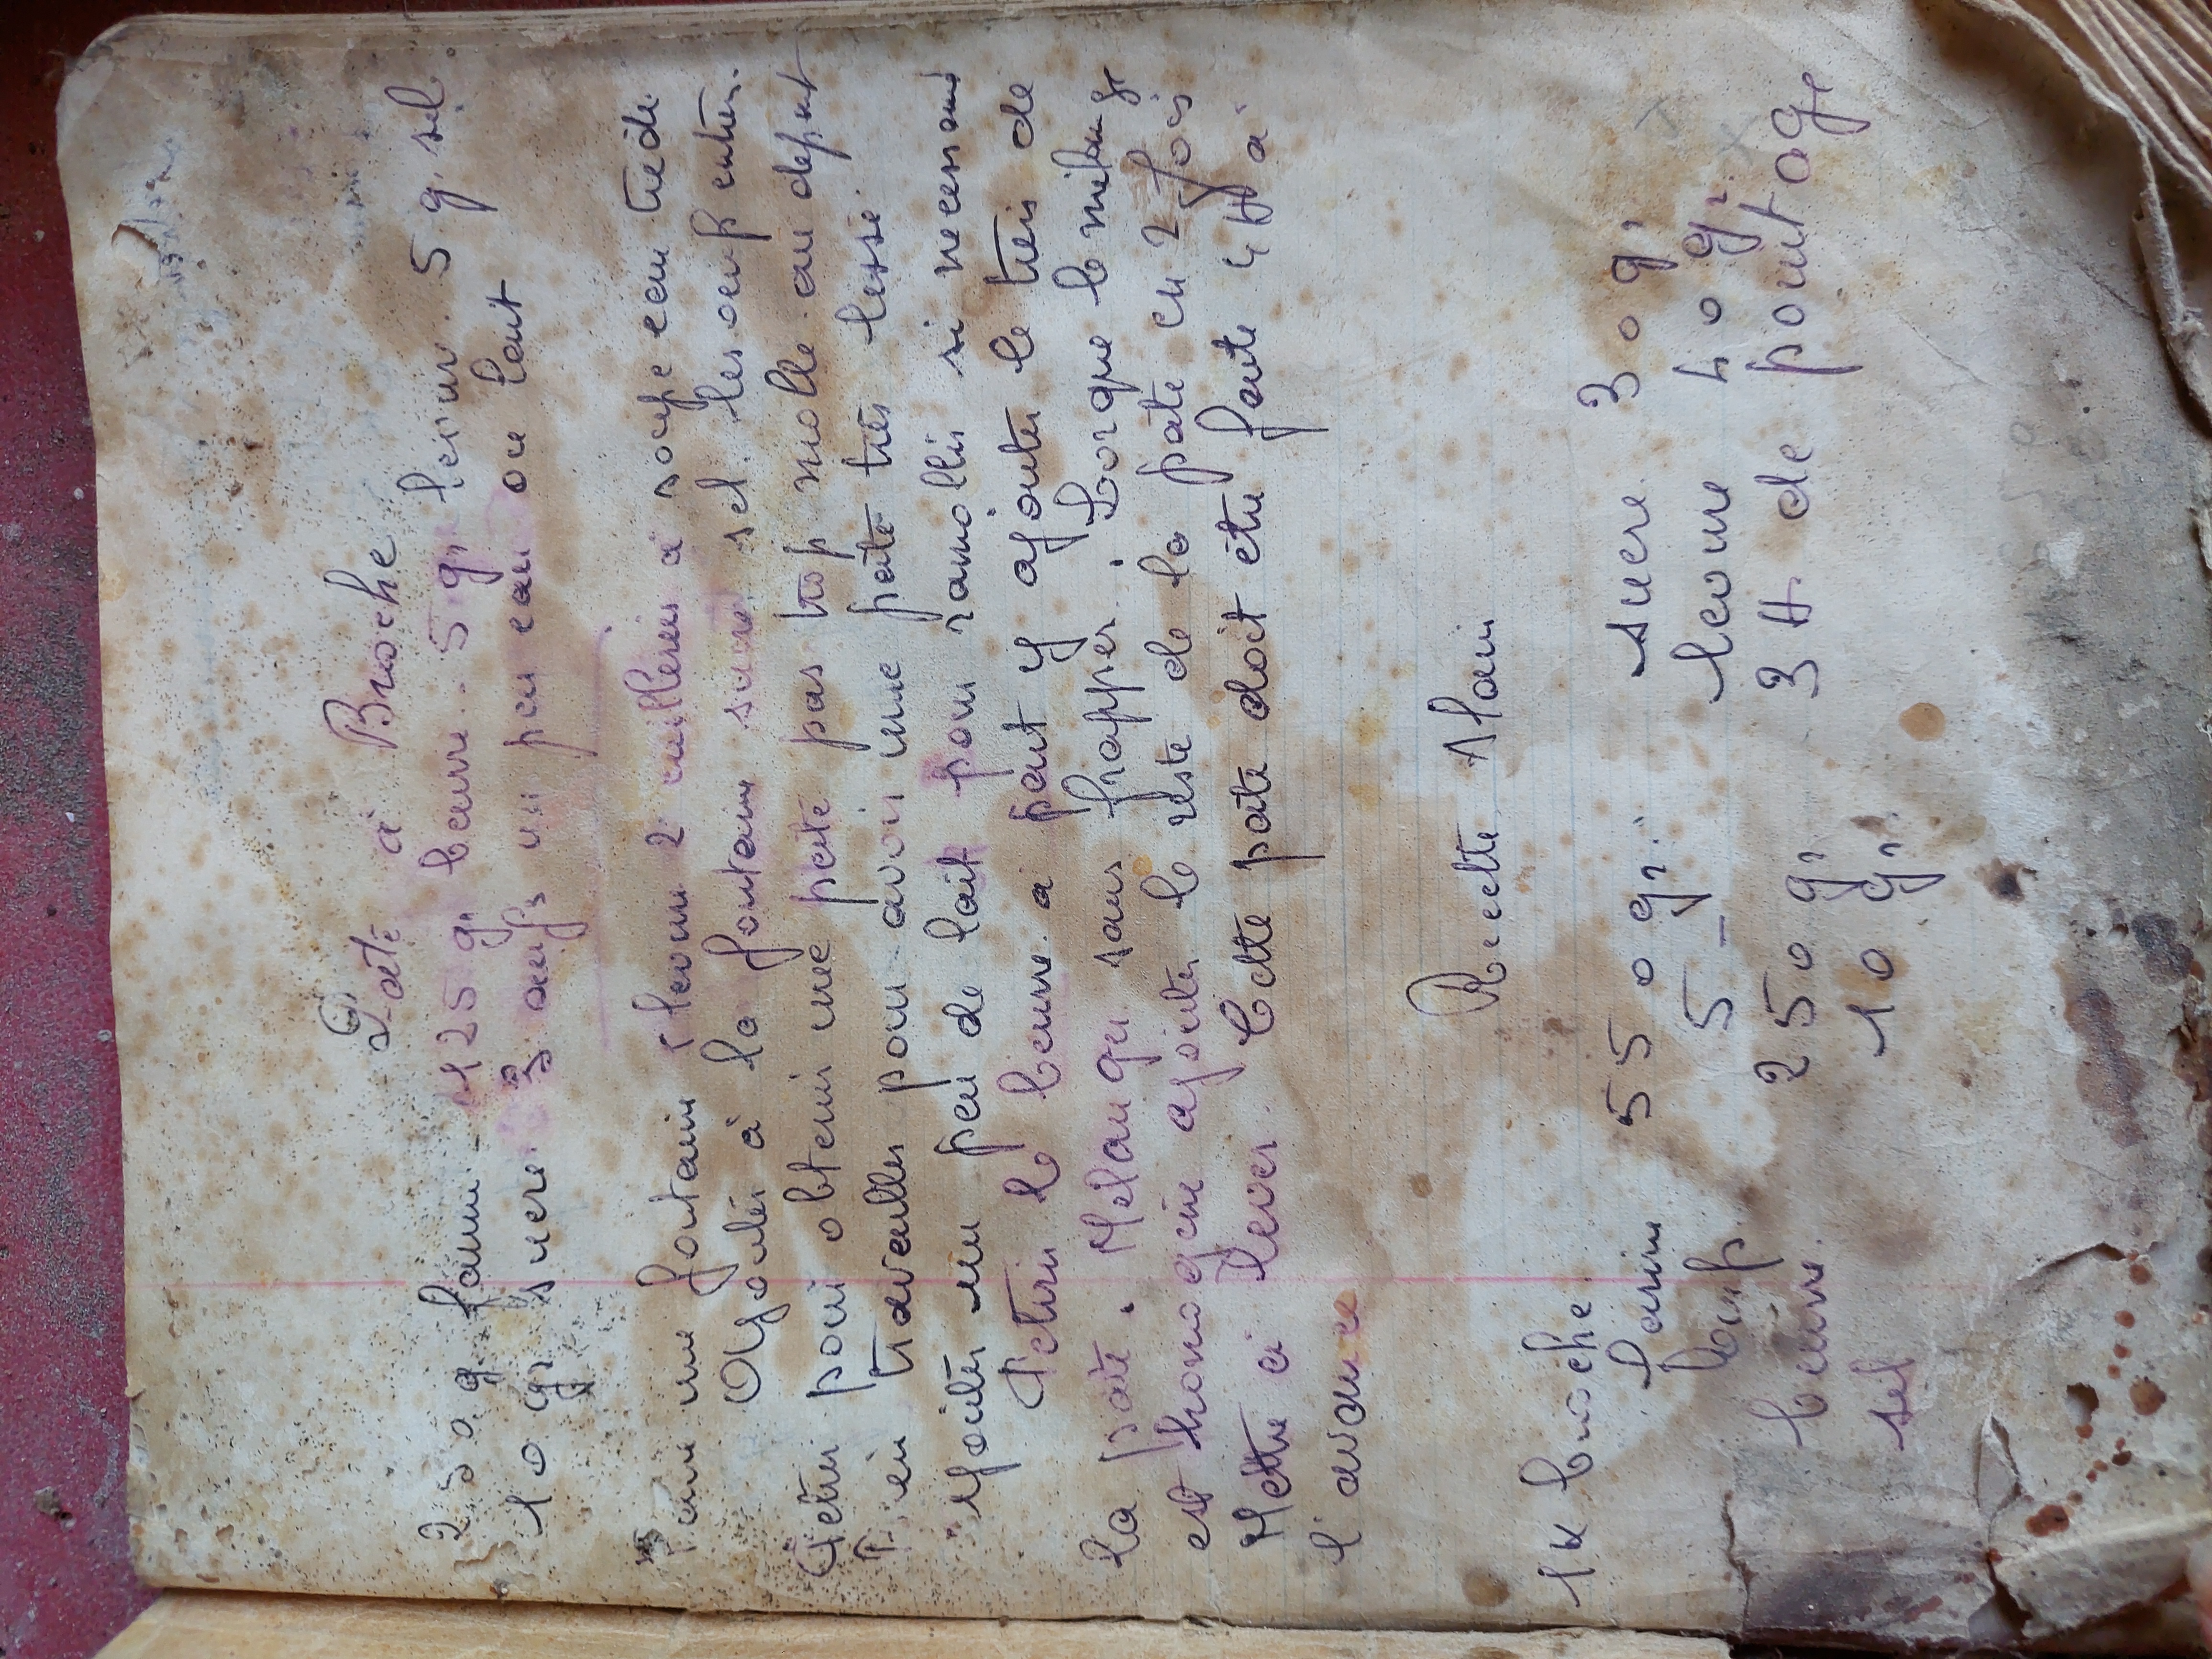 Paté à Brioche
250 g farine 125 g, beurre. 5 g, levure 5 g, sel.
10 gr sucre 3 oeufs un peu eau ou lait
Faire une fontaine levure 2 cuilleres a soupe eau tiede
Ajouter à la fontaine sucre sel les oeufs entier.
Petrir pour obtenir une paté pas trop molle au depart
Bien travailler pour avoir une pate tres lisse.
Ajouter un peu de lait pour ramollir si necessaire
Petrir le beurre a part y ajouter le tiers de
la pate. Melanger sans frapper. Lorque le melange
est homogene ajouter le reste de la pate en 2 fois
Mettre a lever. Cette pate doit être faite 4 H à
l'avance
Recette Alain
1 K brioche
farine 550 gr. sucre 30 gr
oeuf 5 - levure 40 gr.
beurre 250 gr 3 H. de pointage
sel 10 gr